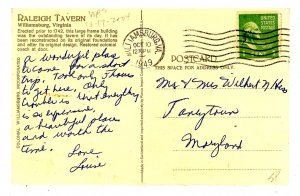 Raleigh Tavern
Williamsburg, Virginia
Erected prior to 1742, this large frame building
the outstanding tavern of its day. It has
been reconstructed on its original foundations
and after its original design. Restored colonial
coach at door.
a wonderful place
to come for a short
trip. Took only 7 hours
to get here. Only
trouble is that everything
is so expensive,
a beautiful place
and worth the
time.
Love
Louise
COLONIAL WILLIAMSBURG
WILLIAMSBURG, VA.
OCT 10
12 PM
1949
POSTCARD
THIS SPACE FOR ADDRESS ONLY
Mr & Mrs Wilbert N Hess
Taneytown
Maryland